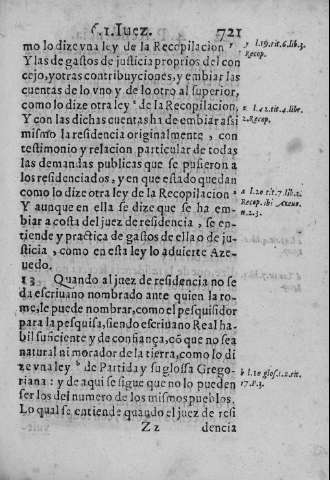 6. I. Iuez. 721
mo lo dize vna ley de la Recopilacion y
Y las de gastos de justicia proprios del con
cejo, y otras contribuyciones, y embiar las
cuentas de lo vno y de lo otro al superior,
como lo dize otra ley z de la Recopilacion,
Y con las dichas cuentas ha de embiar assi
mismo la residencia originalmente, con
testimonio y relacion particular de todas
las demandas publicas que se pusieron a
los residenciados, y en que estado quedan
como lo dize otra ley de la Recopilacion a
Y aunque en ella se dize que se ha em-
biar a costa del juez de residencia, se en-
tiende y practica de gastos de ella o de ju-
sticia, como en esta ley lo aduierte Aze-
uedo.
13 Quando al juez de residencia no se
da escriuano nombrado ante quien la to-
me, le puede nombrar, como el pesquisidor
para la pesquisa, siendo escriuano Real ha-
bil suficiente y de confiança, cõ que no sea
natural ni morador de la tierra, como lo di
ze vna ley b de Partida y su glossa Grego-
riana: y de aqui se sigue que no lo pueden
ser los del numero de los mismos pueblos.
Lo qual se entiende quando el juez de resi
Zz dencia
y l.19.tit.6.lib.3.
Recop.
z l.42.tit.4.libr.
2.Recop.
a l.20.tit.7.lib.2.
Recop. ibi Azeue.
n.2.3.
b l.12 glos.1.2.tit.
17.P.3.